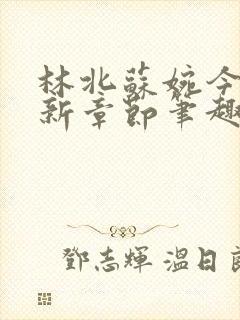 林北蘇婉今
新章節筆趣
鄧志輝 溫日良